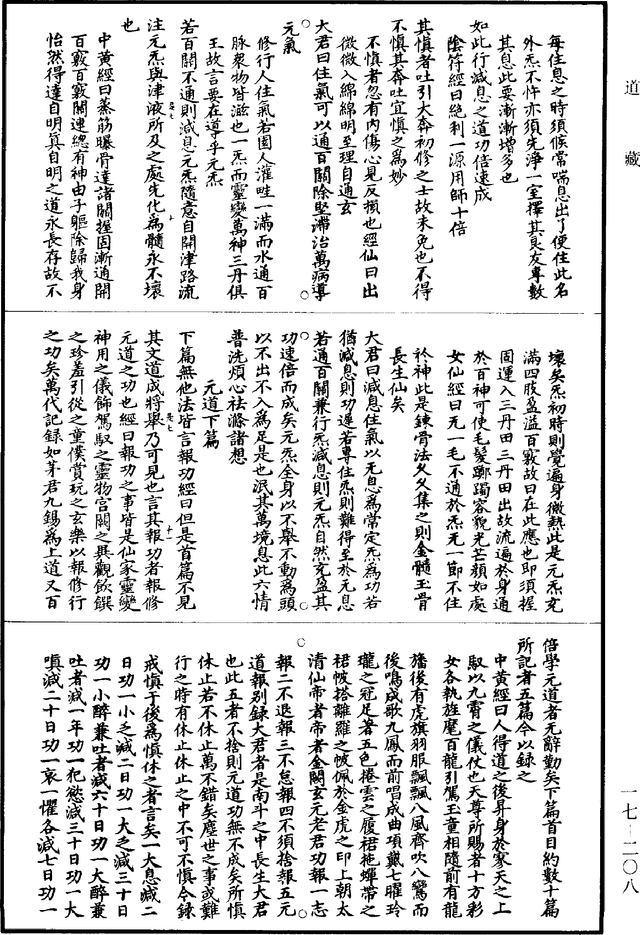 道藏
每住息之時須候常喘息出了便住此名
外炁不忤亦須先淨一室擇其良友專數
其息此要漸漸增多也
如此行減息之道功倍速成
陰符經曰絕利一源用師十倍
其慎者吐引大奔初修之士故未免也不得
不慎其奔吐宜慎之為妙
不慎者忽有內傷心見反損也經仙曰出
微微入綿綿明至理自通玄
大君曰住氣可以通百關除堅滯治萬病導
元氣
修行人住氣若園人灌畦一滿而水通百
脉衆物皆滋也一炁而靈變萬神三丹俱
王故言要在導乎元炁
若百關不通則減息元炁隨意自開津路流
注元炁與津液所及之處先化為髓永不壞
也
中黃經曰蒸筋曝骨達諸關握固漸通開
百竅百竅關連總有神由子軀除歸我身
怡然得達自明真自明之道永長存故不
壞矣炁初時則覺遍身微熱此是元炁充
滿四肢盈溢百竅故曰在此應也即須握
固運入三丹田三丹田出故流遍於身通
於百神可使毛髮躑躅容貌光芒顏如處
女仙經曰元一毛不通於炁元一節不住
於神此是鍊骨法久久集之則金髓玉骨
長生仙矣
大君曰減息住氣以元息為常定炁為功若
猶減息則功遲若專住炁則難得至於元息
若通百關兼行炁減息則元炁自然充盈其
功速倍而成矣元炁全身以不舉不動為頭
以不出不入為足是也泯其萬境息此六情
普洗煩心祛滌諸想
元道下篇
下篇無他法皆言報功經曰但是首篇不見
其文道成將舉乃可見也言其報功者報修
元道之功也經曰報功之事皆是仙家靈變
神用之儀飾駕馭之靈物宮闕之異觀飲饌
之珍羞引從之童僕賞玩之玄樂以報修行
之功矣萬代記錄如茅君九錫為上道又百
倍學元道者元辭勤矣下篇首目約數十篇
所記者五篇今以錄之
中黃經曰人得道之後昇身於寥天之上
馭以九霄之儀仗也天尊所賜者十方彩
女各執旌麾百龍引駕玉童相隨前有龍
旛後有虎旗羽服飄飄八風齊吹八鸞而
後鳴成歌九鳳而前唱成曲項戴七曜玲
瓏之冠足著五色捲雲之履裙拖蟬帶之
裙帔搭離羅之帔佩於金虎之印上朝太
清仙帝者帝者金闕玄元老君功報一志
報二不退報三不怠報四不須捨報五元
道報別錄大君者是南斗之中長生大君
也此五者不捨則元道功無不成矣所慎
休止若不休止萬不錯矣塵世之事或難
行之時有休止休止之中不可不慎今錄
戒慎于後為慎休之者言矣一大息減二
日功一小之減二日功一大之減三十日
功一小醉兼吐者減六十日功一大醉兼
吐者減一年功一犯慾減三十日功一大
嗔減二十日功一哀一懼各減七日功一
一七—二〇八